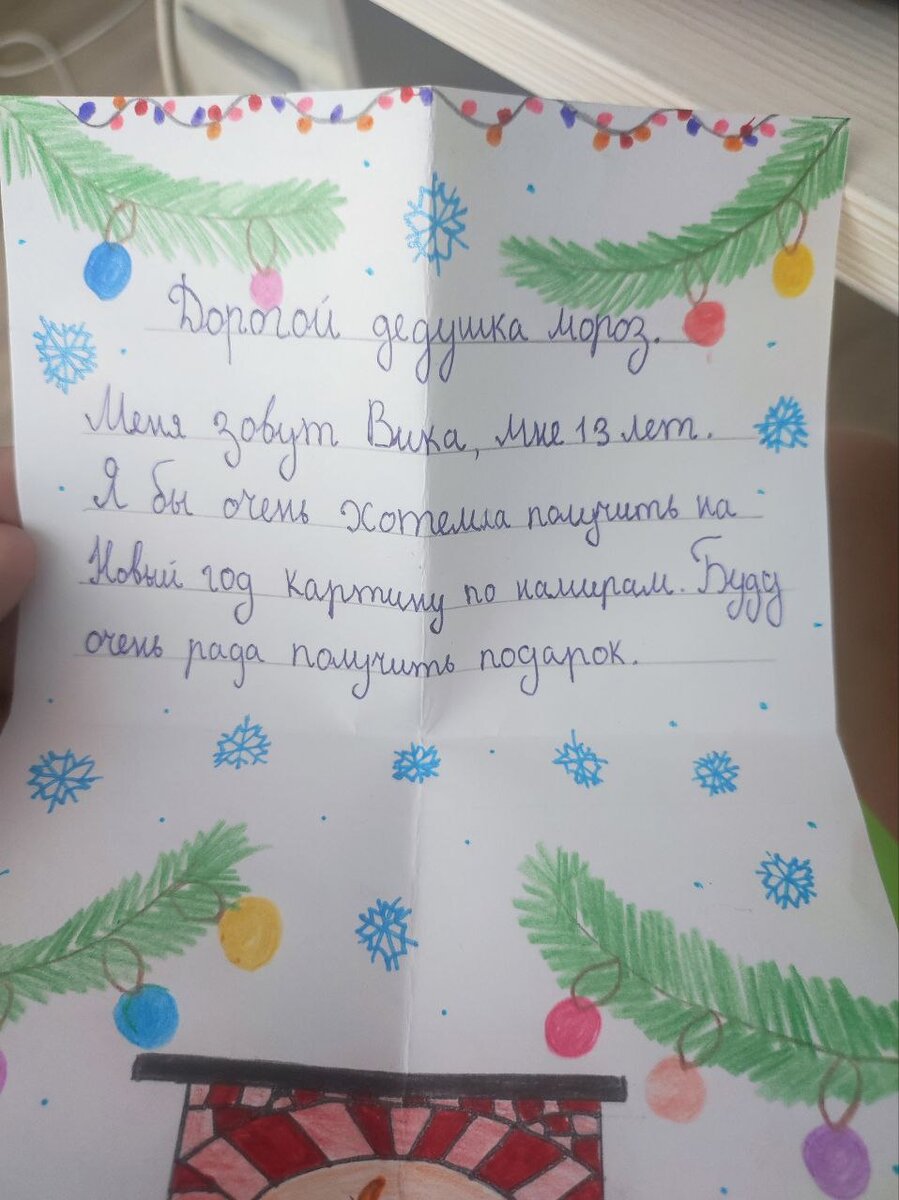 Дорогой дедушка мороз.
Меня зовут Вика, мне 13 лет.
Я бы очень хотела получить на
Новый год картину по намерам. Буду
очень рада получить подарок.